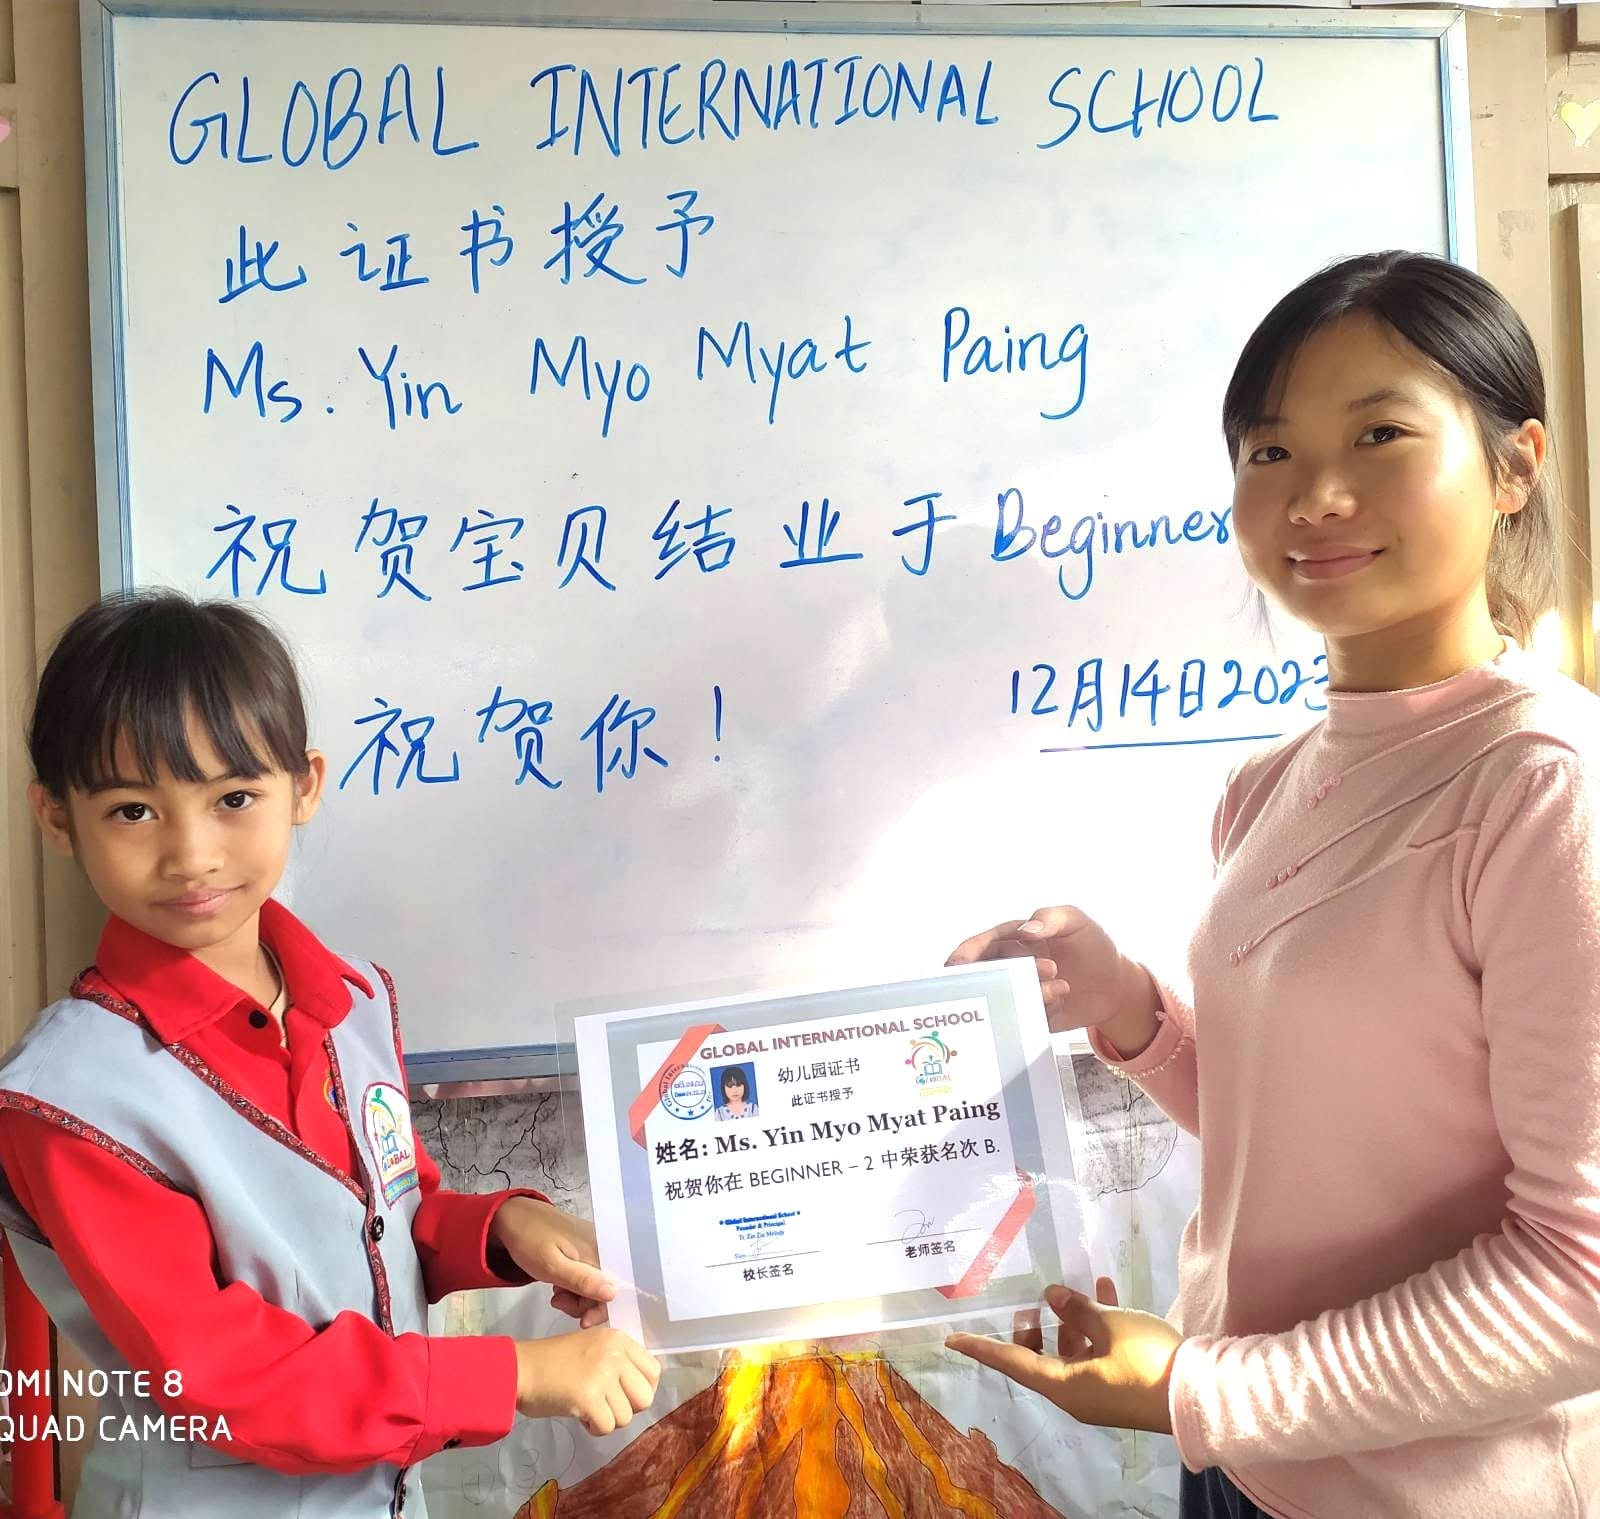 GLOBAL INTERNATIONAL SCHOOL
此证书授予
Ms. Yin Myo Myat Paing
祝贺宝贝结业于Beginner
12月14日2023
祝贺你!
GLOBAL INTERNATIONAL SCHOOL
幼儿园证书
此证书授予
GLOBAL
姓名: Ms. Yin Myo Myat Paing
祝贺你在 BEGINNER – 2 中荣获名次 B.
Global International School
Founder & Principal
校长签名
老师签名
GLOBAL
NOTE 8
QUAD CAMERA